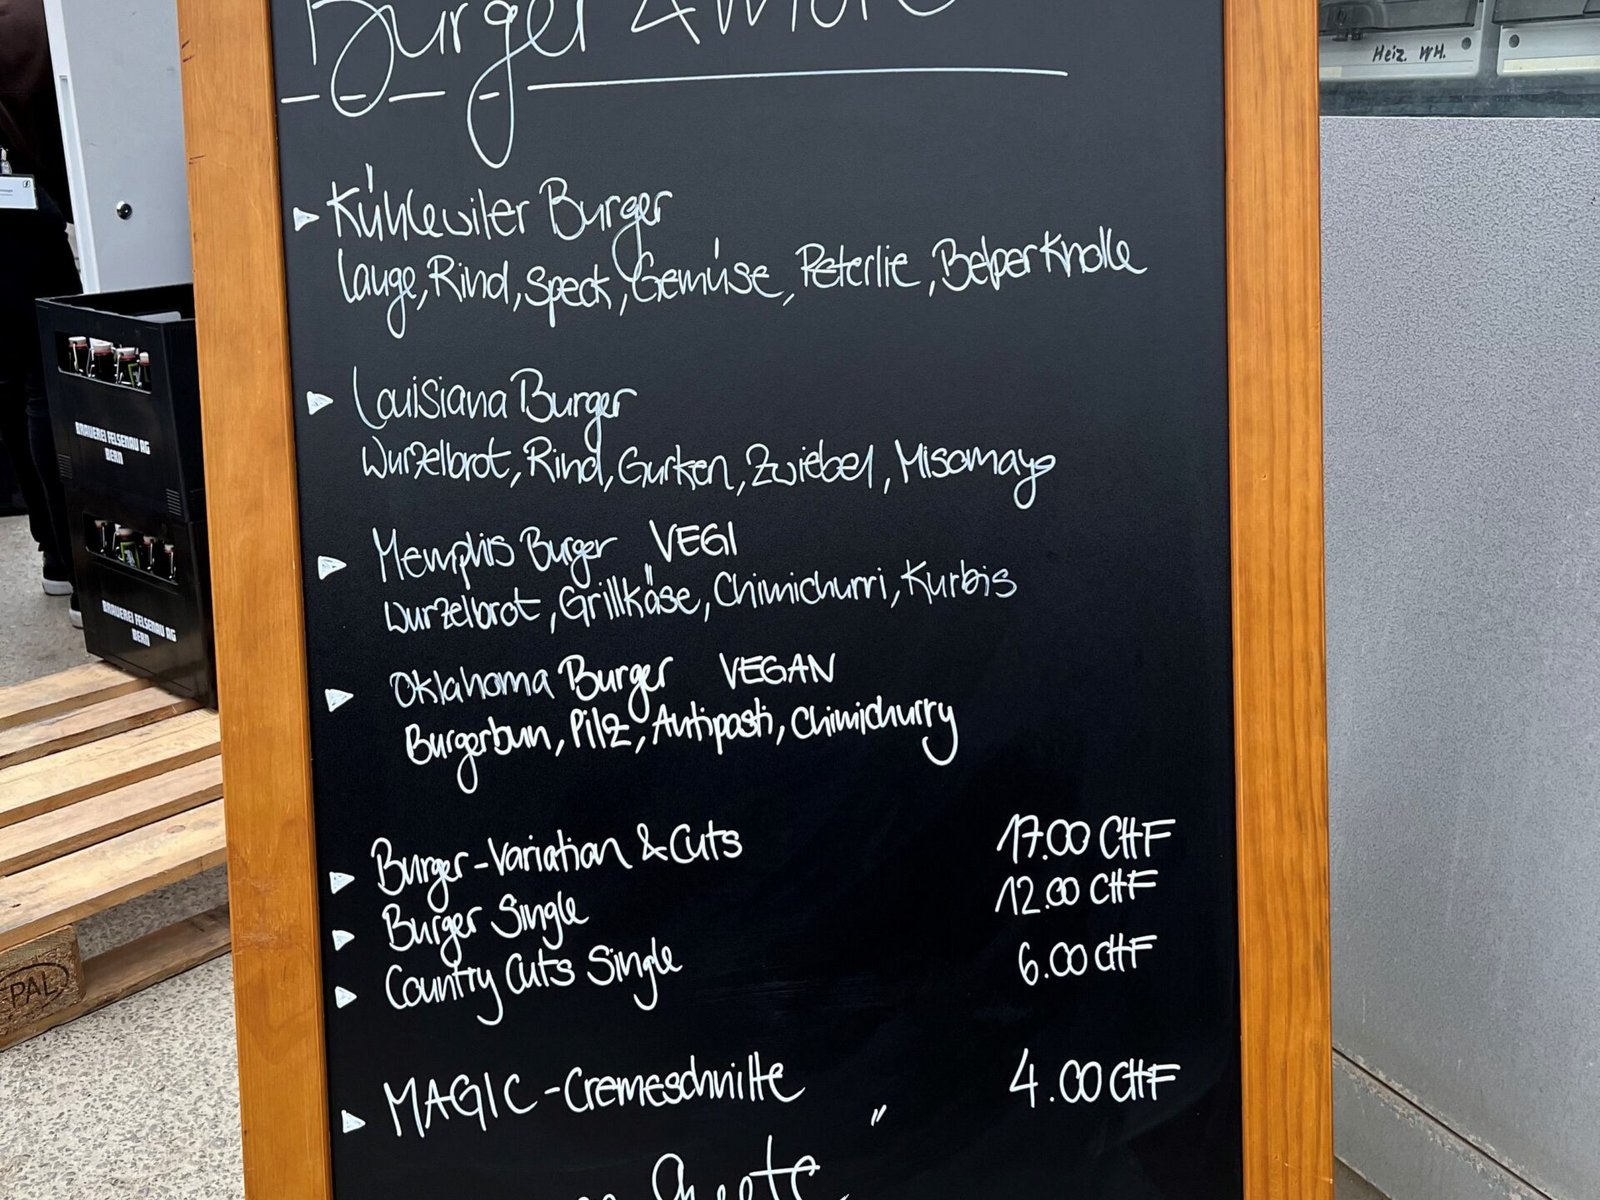 Burger & More
Kühlewiler Burger
Lauge, Rind, Speck, Gemüse, Peterlie, Belper Knolle
Louisiana Burger
Wurzelbrot, Rind, Gurken, Zwiebel, Misomayo
Memphis Burger VEGI
Wurzelbrot, Grillkäse, Chimichurri, Kürbis
Oklahoma Burger VEGAN
Burgerbun, Pilz, Antipasti, Chimichurry
Burger-Variation & Cuts 17.00 CHF
Burger Single 12.00 CHF
Country Cuts Single 6.00 CHF
MAGIC-Cremeschnitte 4.00 CHF
Heiz. WH.
BRAUEREI FELSENAU AG
BERN
BRAUEREI FELSENAU AG
BERN
PAL